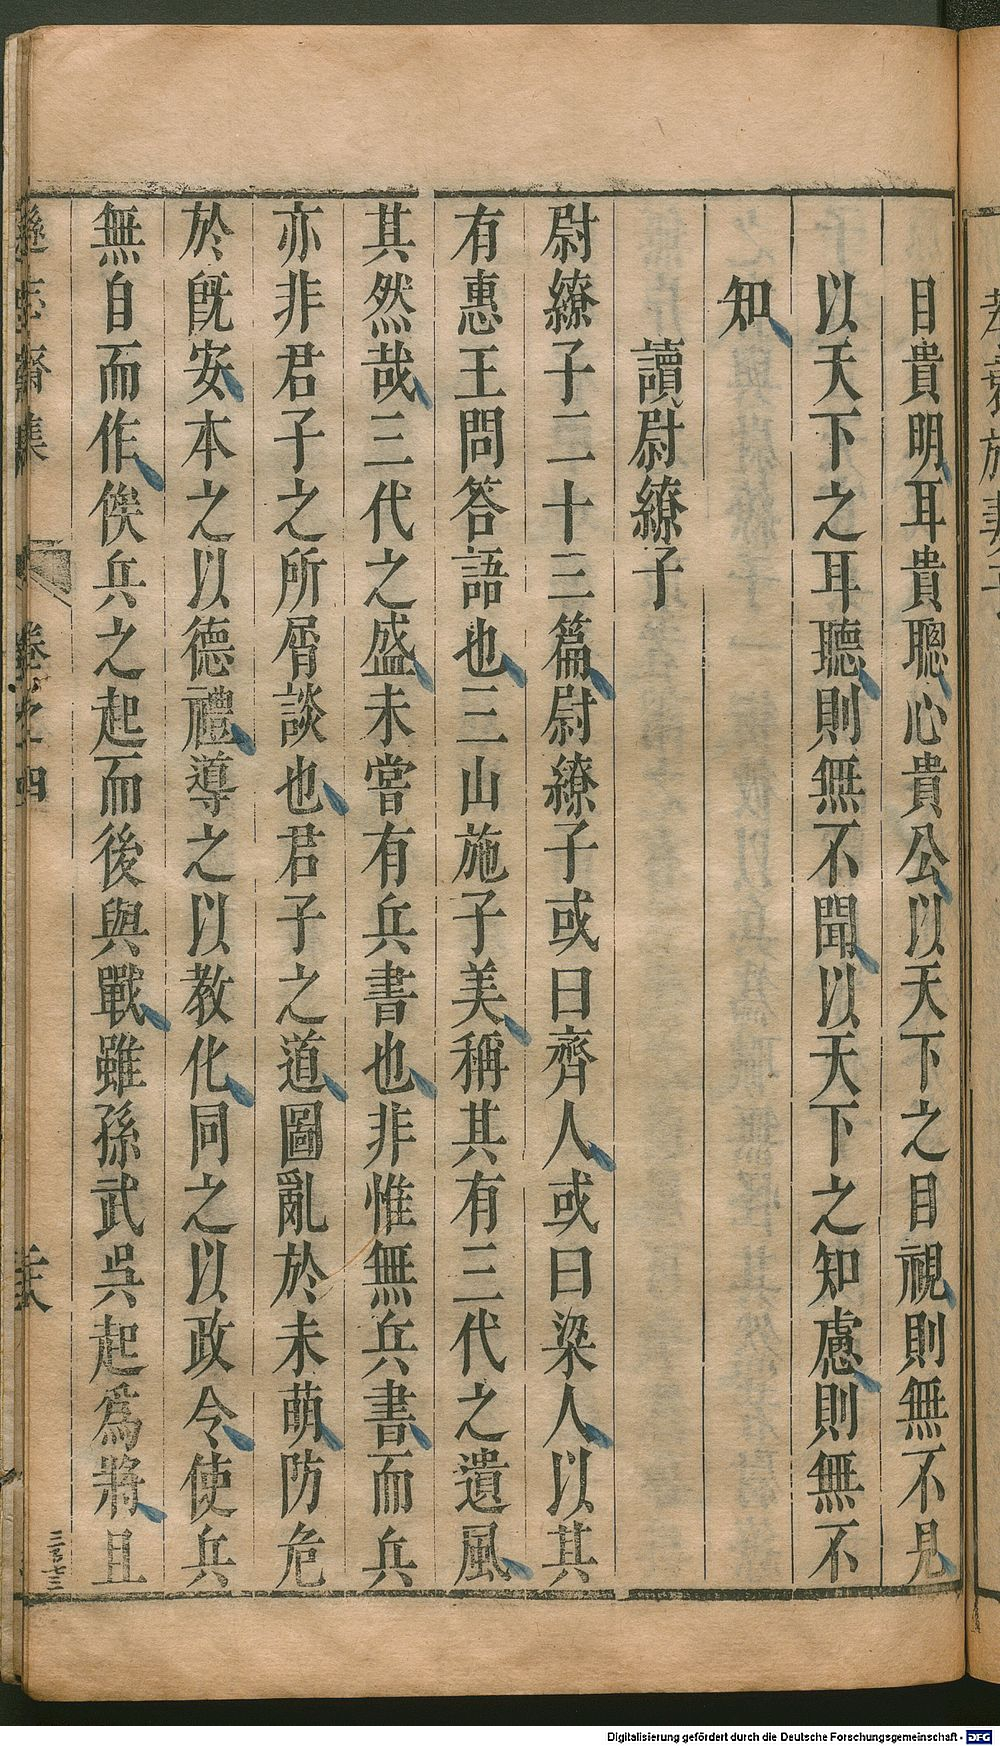 目貴明耳貴聰心貴公以天下之目視則無不見
以天下之耳聽則無不聞以天下之知慮則無不
知
讀尉繚子
尉繚子二十三篇尉繚子或曰齊人或曰梁人以其
有惠王問答語也三山施子美稱其有三代之遺風
其然哉三代之盛未嘗有兵書也非惟無兵書而兵
亦非君子之所屑談也君子之道圖亂於未萌防危
於旣安本之以德禮導之以教化同之以政令使兵
無自而作俟兵之起而後與戰雖孫武吳起爲將且
遜志齋集 卷之四
Digitalisierung gefördert durch die Deutsche Forschungsgemeinschaft - DFG